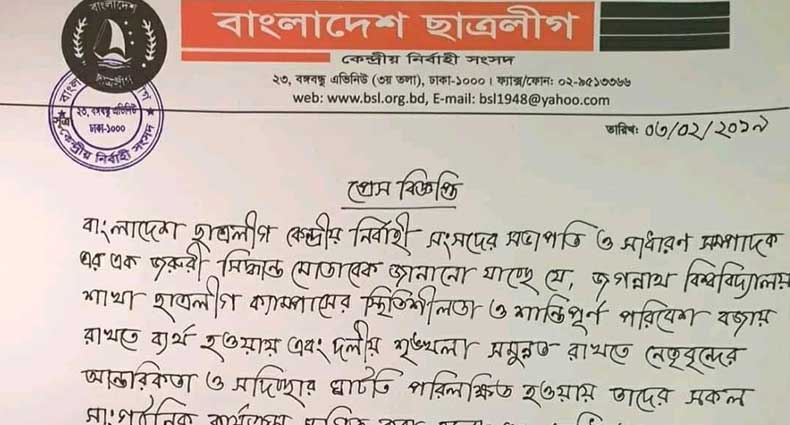 বাংলাদেশ ছাত্রলীগ
কেন্দ্রীয় নির্বাহী সংসদ
২৩, বঙ্গবন্ধু এভিনিউ (৩য় তলা), ঢাকা-১০০০। ফ্যাক্স/ফোন: ০২-৯৫১৩৩৬৬
web: www.bsl.org.bd, E-mail: bsl1948@yahoo.com
ছাত্রলীগ
২৩, বঙ্গবন্ধু এভিনিউ
ঢাকা-১০০০
কেন্দ্রীয় নির্বাহী সংসদ
তারিখ: ০৩/০২/২০১৯
প্রেস বিজ্ঞপ্তি
বাংলাদেশ ছাত্রলীগ কেন্দ্রীয় নির্বাহী সংসদের সভাপতি ও সাধারণ সম্পাদকে
এর এক জরুরী সিদ্ধান্ত মোতাবেক জানানো যাচ্ছে যে, জগন্নাথ বিশ্ববিদ্যালয়
শাখা ছাত্রলীগ ক্যাম্পাসের স্থিতিশীলতা ও শান্তিপূর্ণ পরিবেশ বজায়
রাখতে ব্যর্থ হওয়ায় এবং দলীয় শৃঙ্খলা সমুন্নত রাখতে নেতৃবৃন্দের
আন্তরিকতা ও সদিচ্ছার ঘাটতি পরিলক্ষিত হওয়ায় তাদের সকল
সাংগঠনিক কার্যক্রম